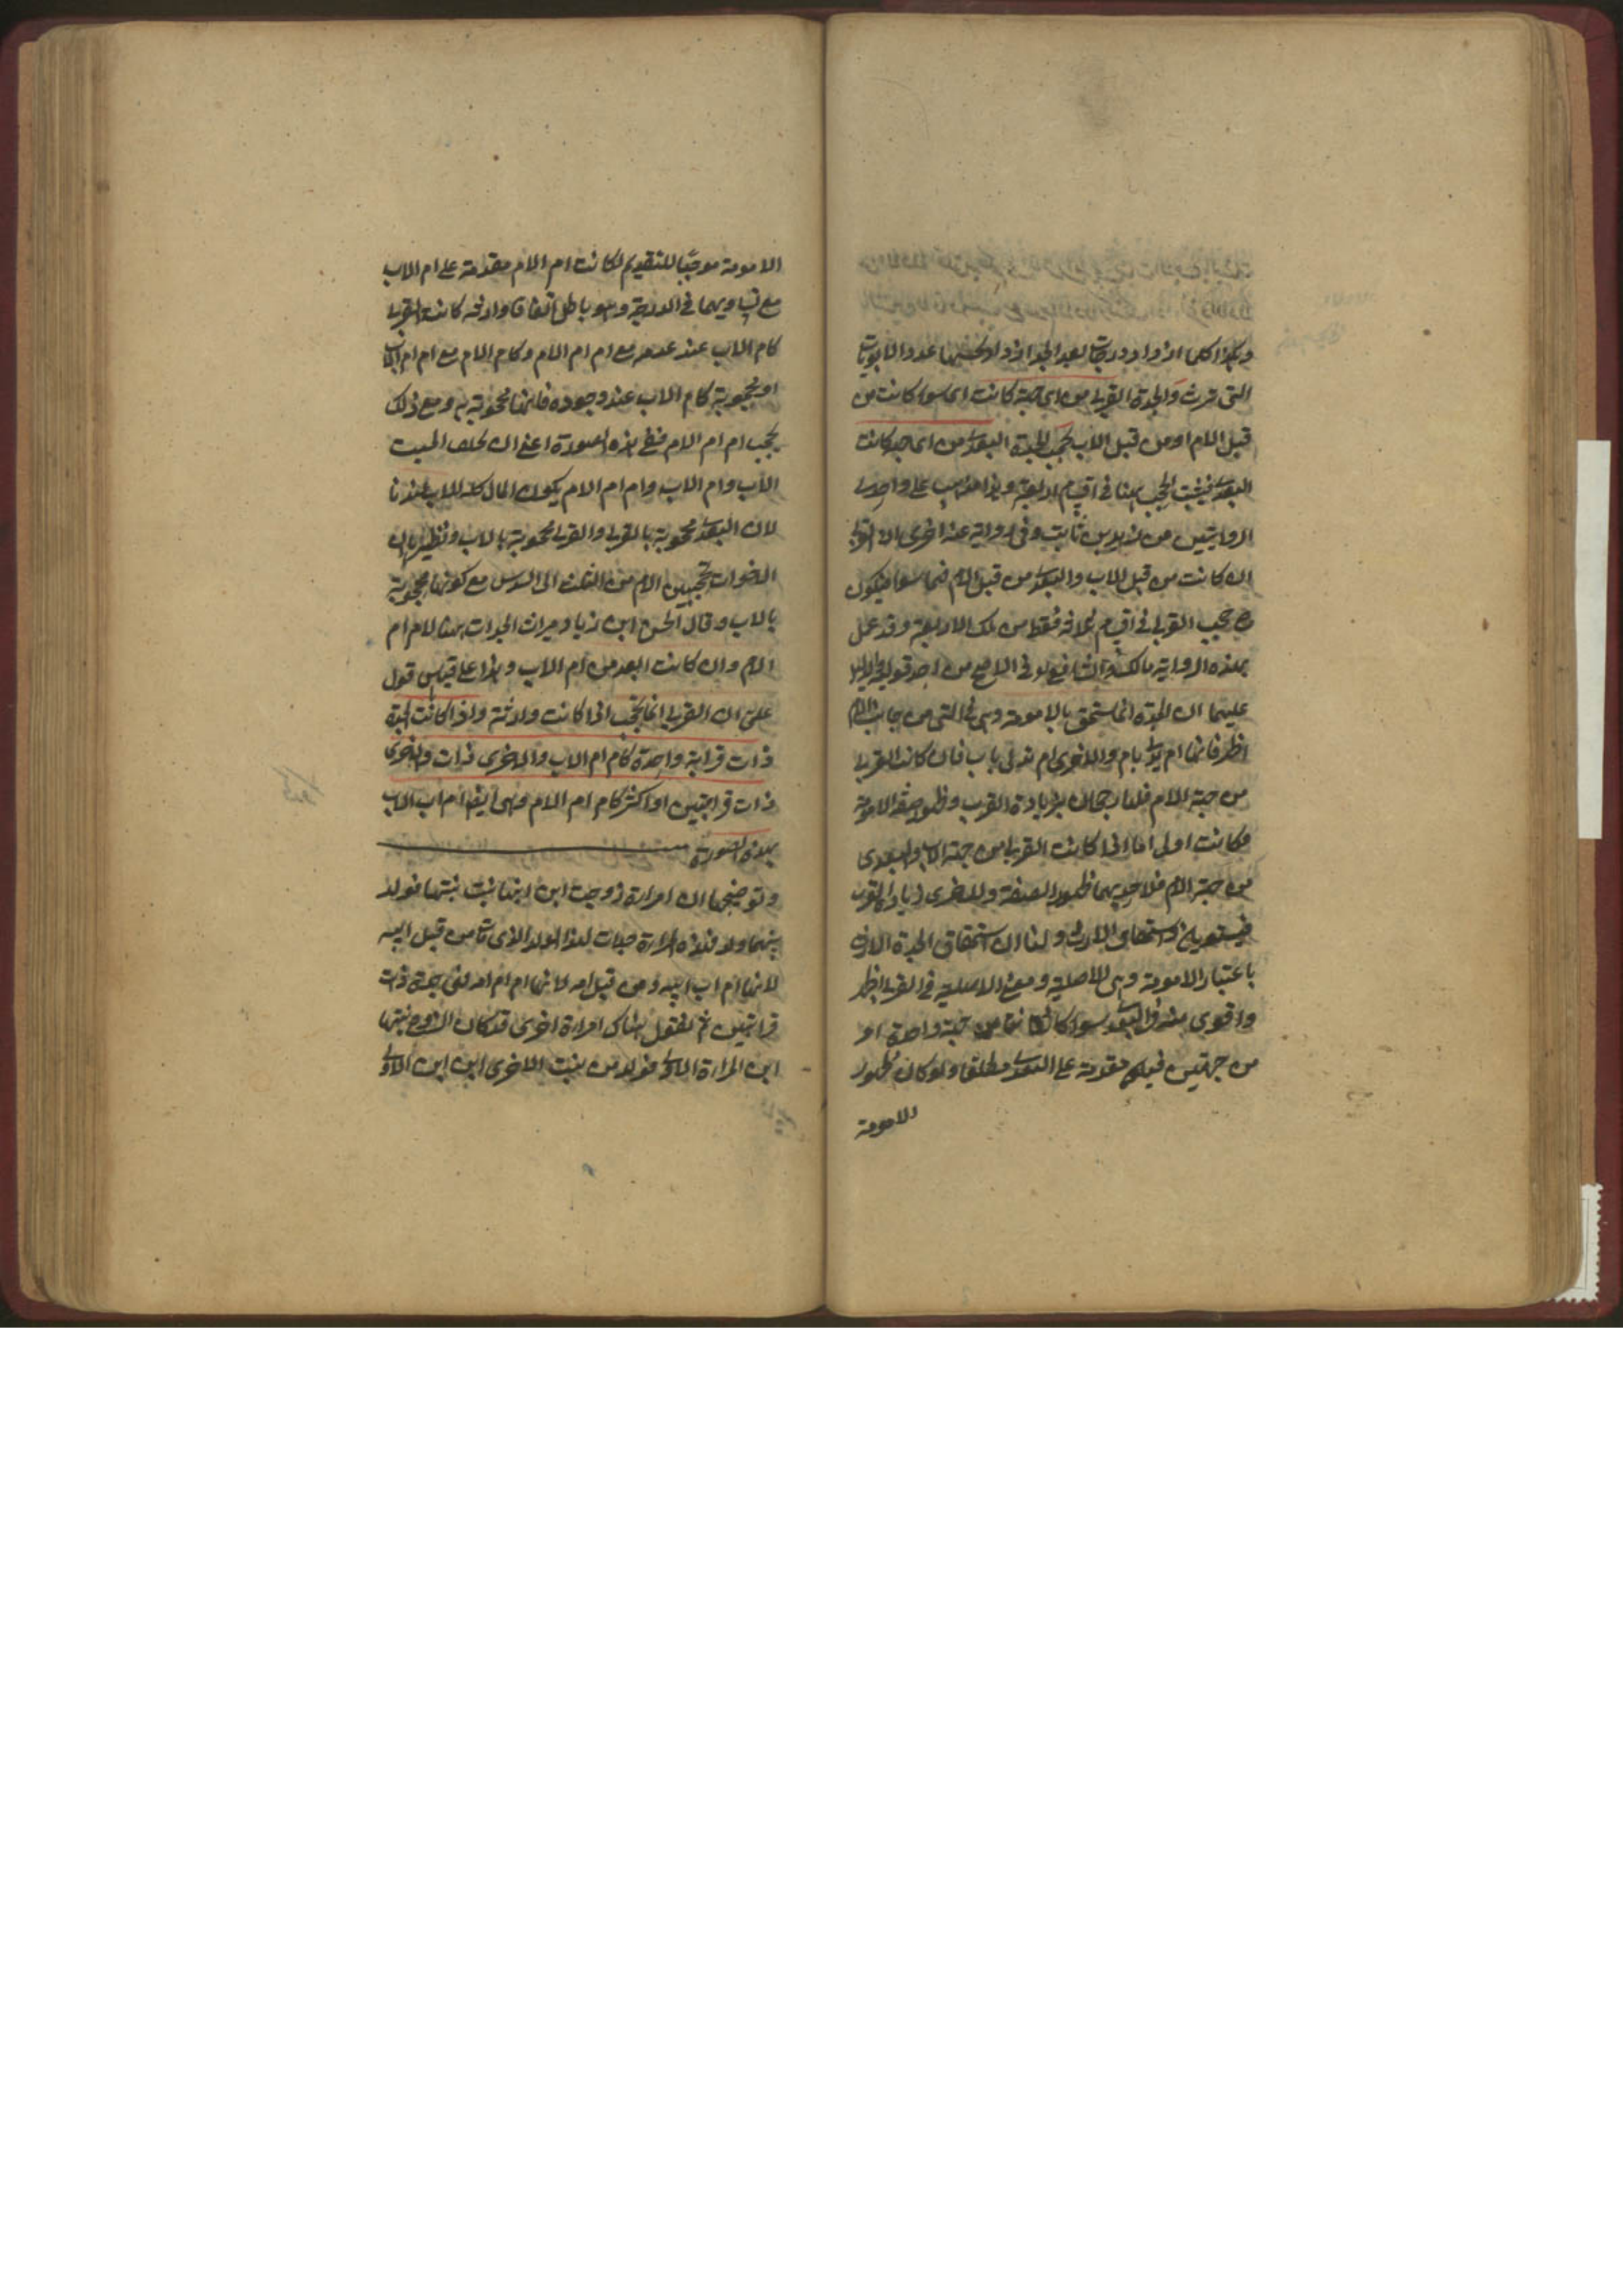 وهكذا كلما ازداد درجات بعد الجد ازداد بحسبها عدد الابويات
التى ترث والجدة القربى من اى جهة كانت اى سواء كانت من
قبل الام او من قبل الاب تحجب الجدة البعدى من اى جهة كانت
البعدى فيثبت الحجب ههنا فى اقسام اربعة وهذا مذهب على واحدى
الروايتين من زيد بن ثابت وفى رواية عنه اخرى ان القربى
ان كانت من قبل الاب والبعدى من قبل الام فهما سواء فيكون
ح حجب القربى فى اقسام ثلاثة فقط من تلك الاربعة وقد عمل
بهذه الرواية مالك والشافعى فى الاصح من احد قوليه
عليهما ان الجدة انما تستحق بالامومة وهى فى التى من جانب الام
اظهر فانها ام تدلى بام والاخرى ام تدلى باب فان كانت القربى
من جهة الام فلها رجحان بزيادة القرب وظهور صفة الامومة
فكانت اولى اما اذا كانت القربى من جهة الاب والبعدى
من جهة الام فلاحديهما ظهور الصفة وللاخرى زيادة القرب
فيستويان فى استحقاق الارث ولنا ان استحقاق الجدة الارث
باعتبار الامومة وهى الاصلية ومعنى الاصلية فى القربى اظهر
واقوى منه فى البعدى سواء كانتا من جهة واحدة او
من جهتين فهى مقدمة على البعدى مطلقا ولو كان ظهور
الامومة
الامومة موجبا للتقديم لكانت ام الام مقدمة على ام الاب
مع تساويهما فى الدرجة وهو باطل اتفاقا وارثة كانت القربى
كام الاب عند عدمه مع ام ام الام وكام الام مع ام ام الاب
او محجوبة كام الاب عند وجوده فانها محجوبة به ومع ذلك
تحجب ام ام الام ففى هذه الصورة اعنى ان يخلف الميت
الاب وام الاب وام ام الام يكون المال كله للاب عندنا
لان البعدى محجوبة بالقربى والقربى محجوبة بالاب ونظيره ان
الاخوات تحجبين الام من الثلث الى السدس مع كونها محجوبة
بالاب وقال الحسن ابن زياد ميراث الجدات هنا لام ام
الام وان كانت ابعد من ام الاب وهذا على قياس قول
على ان القربى انما تحجب اذا كانت وارثة واذا كانت الجدة
ذات قرابة واحدة كام ام الاب والاخرى
ذات قرابتين او اكثر كام ام الام وهى ايضا ام اب الاب
بهذه الصورة
وتوضيحها ان امراءة زوجت ابن ابنها بنت بنتها فولد
بينهما ولد فهذه المراءة جدة لهذا الولد الذى من قبل ابيه
لانها ام اب ابيه ومن قبل امه لانها ام ام امه فهى جدة ذات
قرابتين ثم نقول هناك امراءة اخرى قد كان تزوج بنتها
ابن المراءة الاولى فولد من بنت الاخرى ابن ابن الاولى